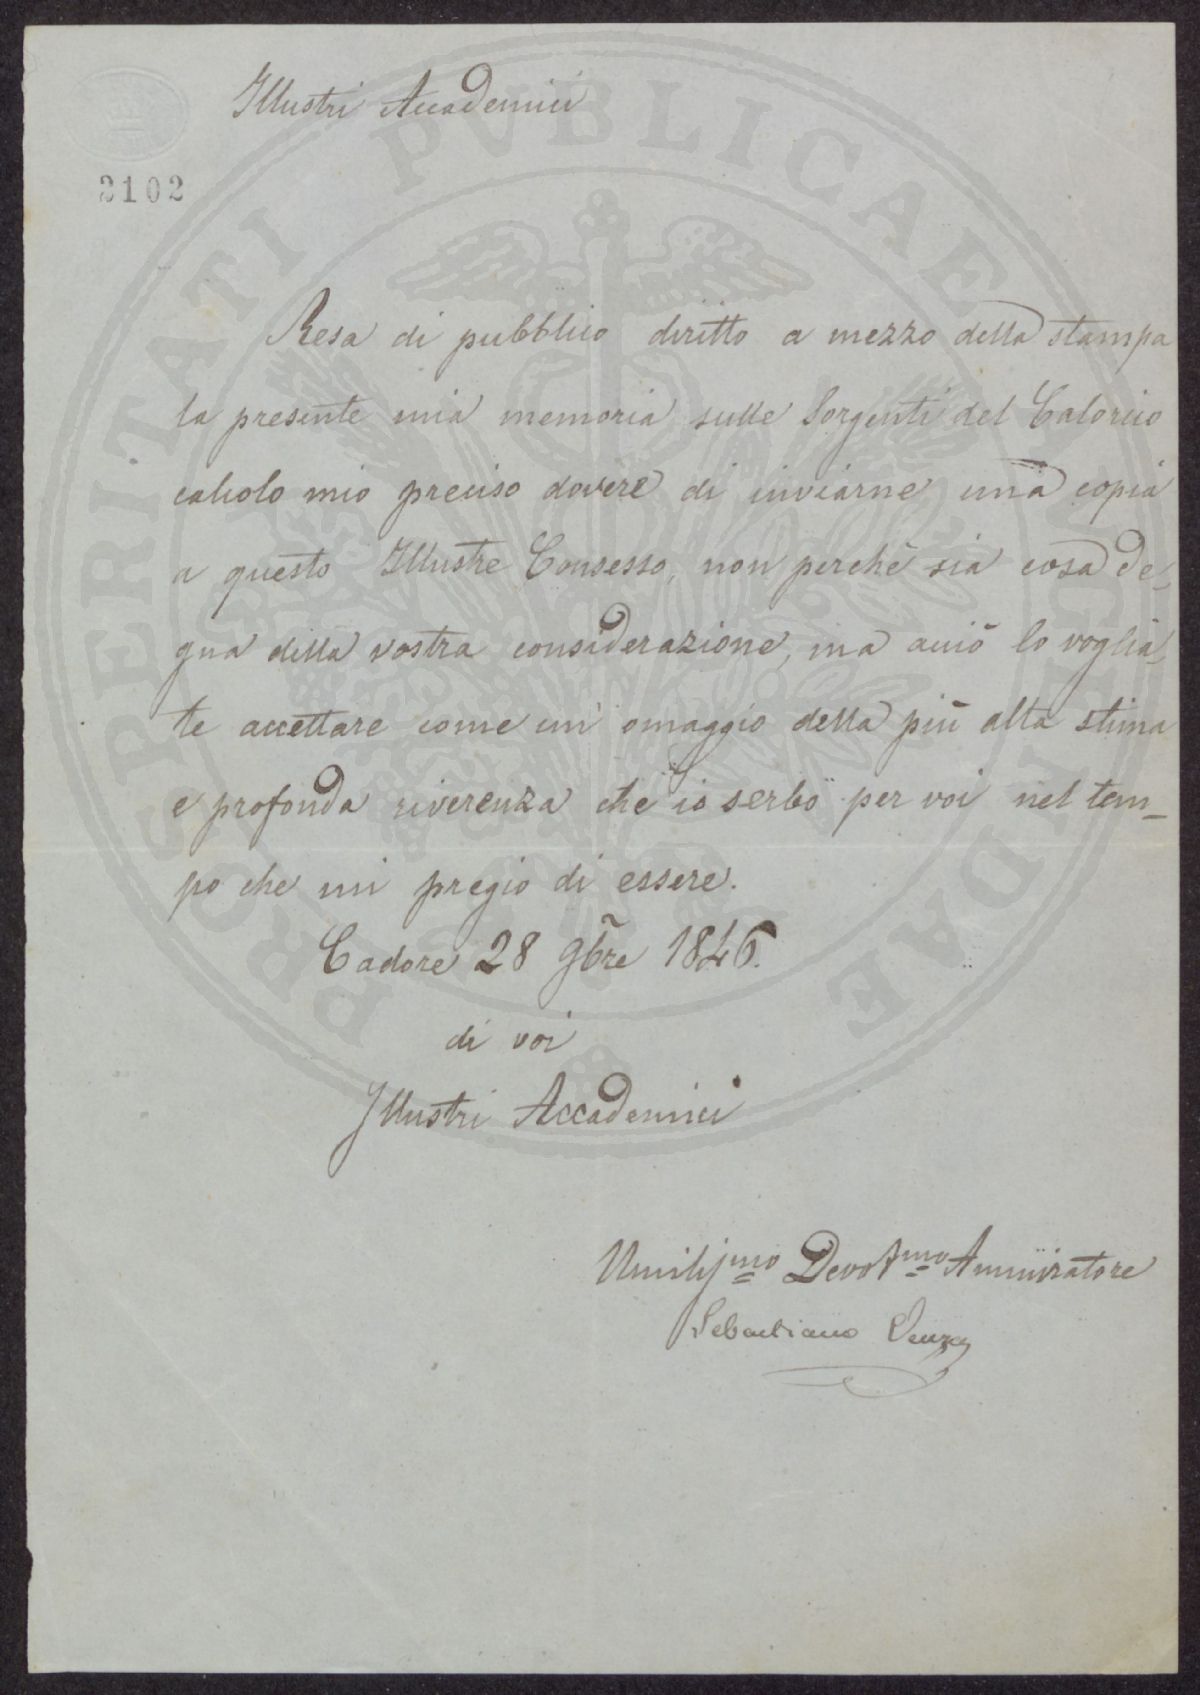 Illustri Accademici
2102
Resa di pubblico diritto a mezzo della stampa
la presente mia memoria sulle Sorgenti del Calorico
calcolo mio preciso dovere di inviarne una copia
a questo Illustre Consesso, non perchè sia cosa de-
gna della vostra considerazione, ma acciò lo voglia-
te accettare come un' omaggio della più alta stima
e profonda riverenza che io serbo per voi nel tem-
po che mi pregio di essere.
Cadore 28 9bre 1846.
di voi
Illustri Accademici
Umiliſmo Devotmo Ammiratore
Sebastiano
PROSPERITATI PVBLICAE AVGENDAE